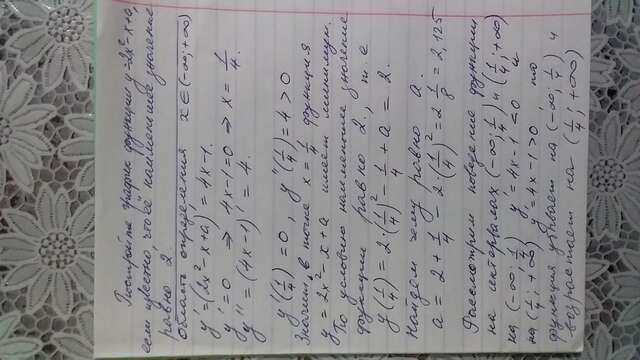 Постройте график функции y=2x²-x+a,
если известно, что её наименьшее значение
равно 2.
Область определения x∈(-∞;+∞)
y'=(2x²-x+a)'=4x-1.
y'=0 ⇒ 4x-1=0 ⇒ x=1/4.
y''=(4x-1)'=4.
y'(1/4)=0, y''(1/4)=4>0
Значит, в точке x=1/4 функция
y=2x²-x+a имеет минимум.
По условию наименьшее значение
функции равно 2., т.е
y(1/4)=2·(1/4)²-1/4+a=2.
Найдем чему равно a.
a=2+1/4-2·(1/4)²=2 1/8=2,125
Рассмотрим поведение функции
на интервалах (-∞;1/4) и (1/4;+∞)
на (-∞;1/4) y'=4x-1<0 и
на (1/4;+∞) y'=4x-1>0, то
функция убывает на (-∞;1/4) и
возрастает на (1/4;+∞)